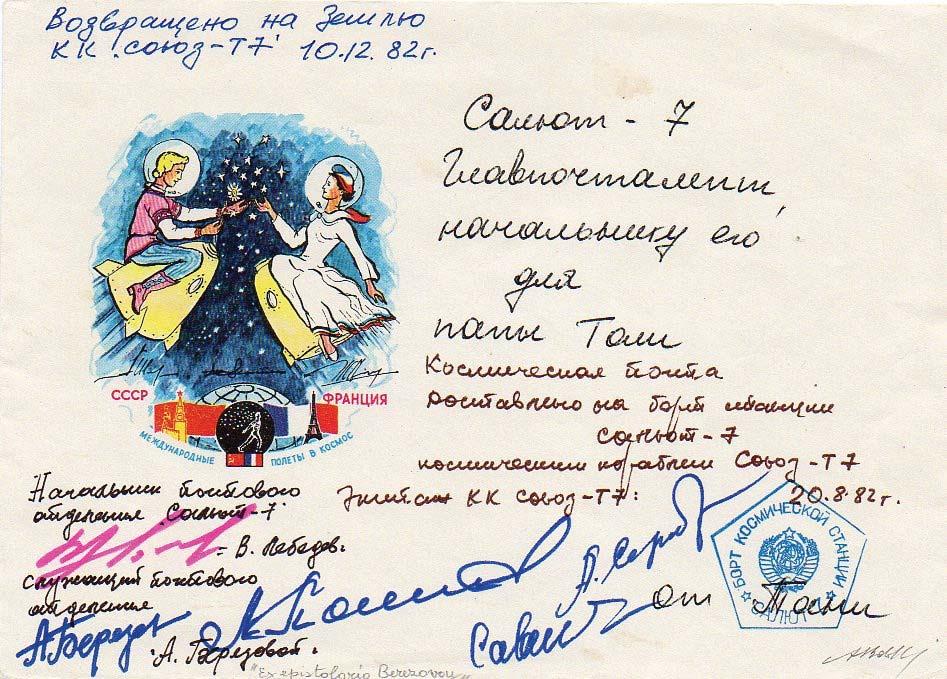 Возвращено на Землю
КК "Союз-Т7" 10.12.82г.
Салют - 7
Главпочтамт,
начальнику его
для
папы Толи
СССР
ФРАНЦИЯ
МЕЖДУНАРОДНЫЕ ПОЛЕТЫ В КОСМОС
Космическая почта
Доставлено на борт станции
Салют-7
космическим кораблем Союз-Т7
Экипаж КК Союз-Т7: 20.8.82г.
Начальник почтового
отделения "Салют-7"
- В. Лебедев.
служащий почтового
отделения
А. Березовой.
БОРТ КОСМИЧЕСКОЙ СТАНЦИИ
САЛЮТ
от
"Ex epistolario Berezovou"